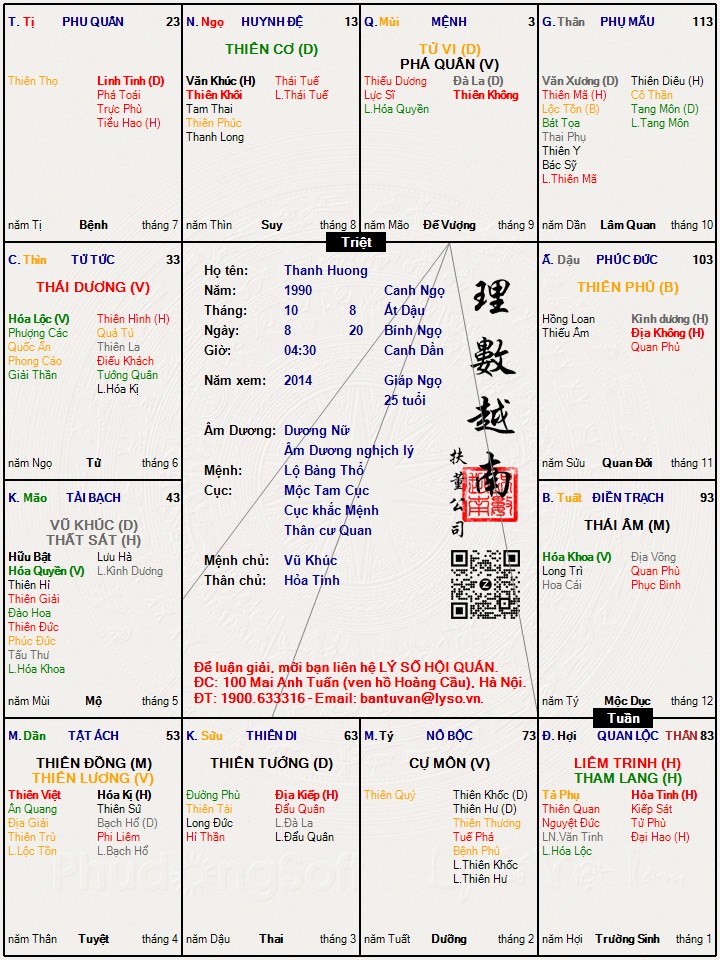 T. Tị PHU QUÂN 23
Thiên Thọ
Linh Tinh (D)
Phá Toái
Trực Phù
Tiểu Hao (H)
năm Tị Bệnh tháng 7
N. Ngọ HUYNH ĐỆ 13
THIÊN CƠ (D)
Văn Khúc (H)
Thiên Khôi
Tam Thai
Thiên Phúc
Thanh Long
Thái Tuế
L.Thái Tuế
năm Thìn Suy tháng 8
Q. Mùi MỆNH 3
TỬ VI (D)
PHÁ QUÂN (V)
Thiếu Dương
Lực Sĩ
L.Hóa Quyền
Đà La (D)
Thiên Không
năm Mão Đế Vượng tháng 9
G. Thân PHỤ MẪU 113
Văn Xương (D)
Thiên Mã (H)
Lộc Tồn (B)
Bát Tọa
Thai Phụ
Thiên Y
Bác Sỹ
L.Thiên Mã
Thiên Diêu (H)
Cô Thần
Tang Môn (D)
L.Tang Môn
năm Dần Lâm Quan tháng 10
Triệt
C. Thìn TỬ TỨC 33
THÁI DƯƠNG (V)
Hóa Lộc (V)
Phượng Các
Quốc Ấn
Phong Cáo
Giải Thần
Thiên Hình (H)
Quả Tú
Thiên La
Điếu Khách
Tướng Quân
L.Hóa Kị
năm Ngọ Tử tháng 6
Họ tên: Thanh Huong
Năm: 1990 Canh Ngọ
Tháng: 10 8 Ất Dậu
Ngày: 8 20 Bính Ngọ
Giờ: 04:30 Canh Dần
Năm xem: 2014 Giáp Ngọ
25 tuổi
Âm Dương: Dương Nữ
Âm Dương nghịch lý
Mệnh: Lộ Bàng Thổ
Cục: Mộc Tam Cục
Cục khắc Mệnh
Thân cư Quan
Mệnh chủ: Vũ Khúc
Thân chủ: Hỏa Tinh
理數越南
扶董公司
Để luận giải, mời bạn liên hệ LÝ SỐ HỘI QUÁN.
ĐC: 100 Mai Anh Tuấn (ven hồ Hoàng Cầu), Hà Nội.
ĐT: 1900.633316 - Email: bantuvan@lyso.vn.
Ấ. Dậu PHÚC ĐỨC 103
THIÊN PHỦ (B)
Hồng Loan
Thiếu Âm
Kình dương (H)
Địa Không (H)
Quan Phủ
năm Sửu Quan Đới tháng 11
K. Mão TÀI BẠCH 43
VŨ KHÚC (D)
THẤT SÁT (H)
Hữu Bật
Hóa Quyền (V)
Thiên Hỉ
Thiên Giải
Đào Hoa
Thiên Đức
Phúc Đức
Tấu Thư
L.Hóa Khoa
Lưu Hà
L.Kình Dương
năm Mùi Mộ tháng 5
B. Tuất ĐIỀN TRẠCH 93
THÁI ÂM (M)
Hóa Khoa (V)
Long Trì
Hoa Cái
Địa Võng
Quan Phù
Phục Binh
năm Tý Mộc Dục tháng 12
Tuần
M. Dần TẬT ÁCH 53
THIÊN ĐỒNG (M)
THIÊN LƯƠNG (V)
Thiên Việt
Ân Quang
Địa Giải
Thiên Trù
L.Lộc Tồn
Hóa Kị (H)
Thiên Sứ
Bạch Hổ (D)
Phi Liêm
L.Bạch Hổ
năm Thân Tuyệt tháng 4
K. Sửu THIÊN DI 63
THIÊN TƯỚNG (D)
Đường Phù
Thiên Tài
Long Đức
Hỉ Thần
Địa Kiếp (H)
Đẩu Quân
L.Đà La
L.Đẩu Quân
năm Dậu Thai tháng 3
M. Tý NÔ BỘC 73
CỰ MÔN (V)
Thiên Quý
Thiên Khốc (D)
Thiên Hư (D)
Thiên Thương
Tuế Phá
Bệnh Phù
L.Thiên Khốc
L.Thiên Hư
năm Tuất Dưỡng tháng 2
Đ. Hợi QUAN LỘC THÂN 83
LIÊM TRINH (H)
THAM LANG (H)
Tả Phụ
Thiên Quan
Nguyệt Đức
LN.Văn Tinh
L.Hóa Lộc
Hỏa Tinh (H)
Kiếp Sát
Tử Phù
Đại Hao (H)
năm Hợi Trường Sinh tháng 1